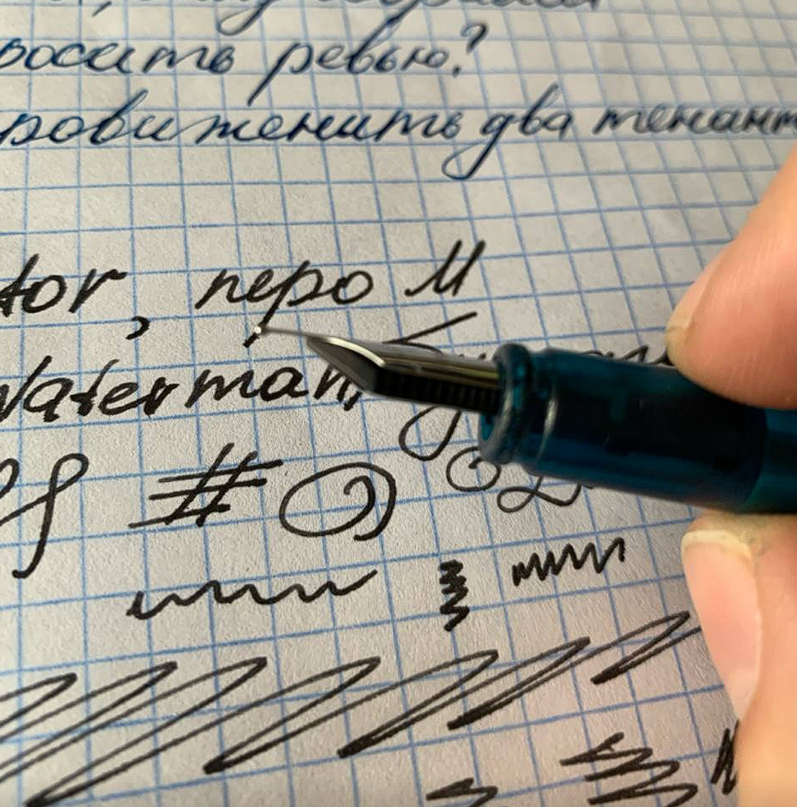 росить ревью?
ровиженить два тенант
tor, перо M
Waterman,
#